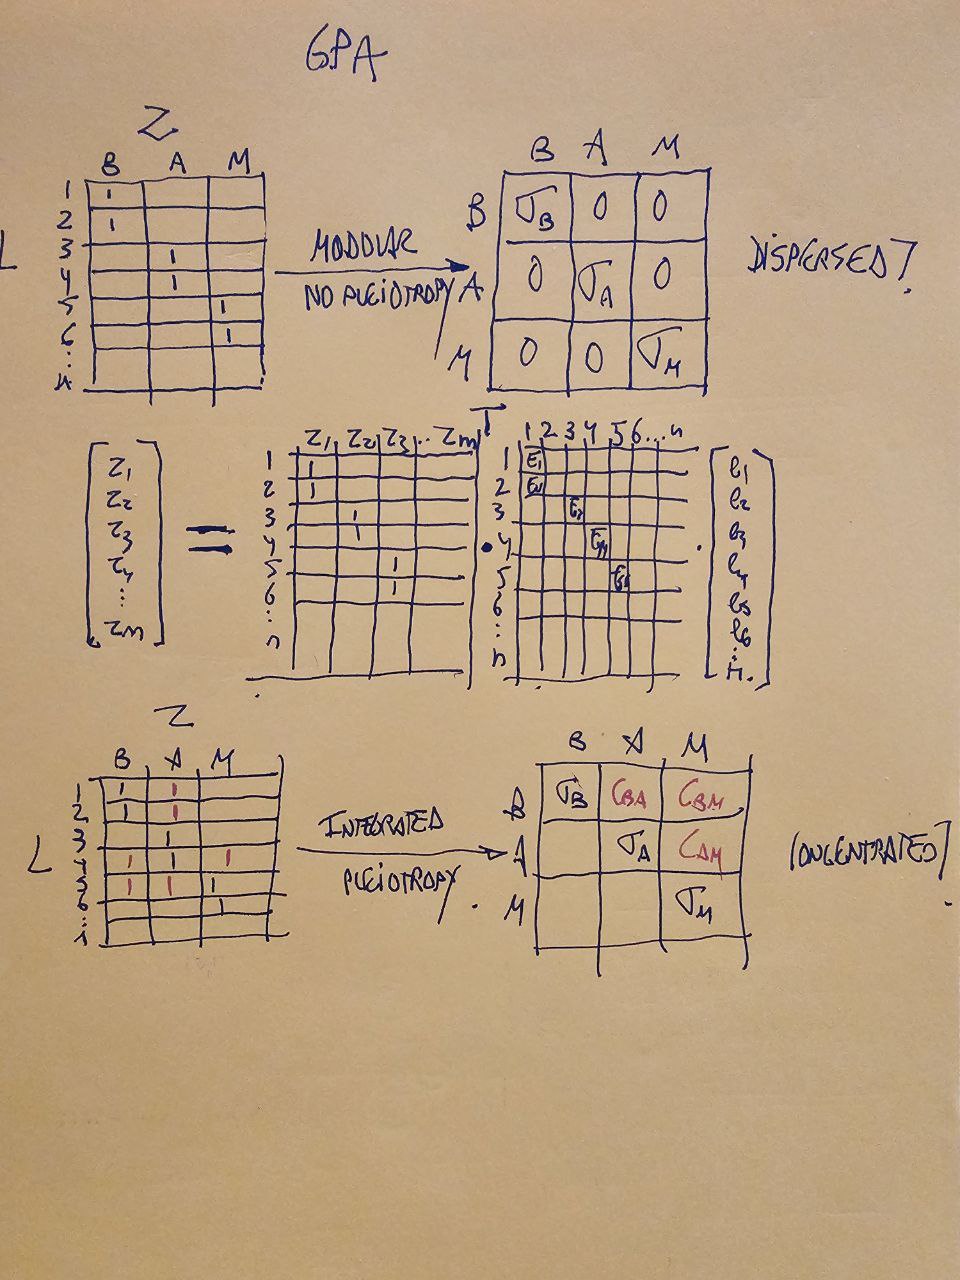 GPA
Z
B A M
1 1
2 1
L 3 1
4 1
5 1
6 1
:
n
MODULAR
NO PLEIOTROPY
B A M
B σB 0 0
A 0 σA 0
M 0 0 σM
DISPERSED?
Z1
Z2
Z3
Z4
...
Zm
=
Z1 Z2 Z3 .. Zm T
1 1
2 1
3 1
4 1
5 1
6 1
:
n
·
1 2 3 4 5 6 ... n
1 E1
2
3
4
5
6
:
n
·
l1
l2
l3
l4
l5
l6
:
Z
B A M
1 1 1
2 1 1
L 3 1
4 1 1 1
5 1 1 1
6 1
:
INTEGRATED
PLEIOTROPY
B A M
B σB CBA CBM
A σA CAM
M σM
CONCENTRATED?